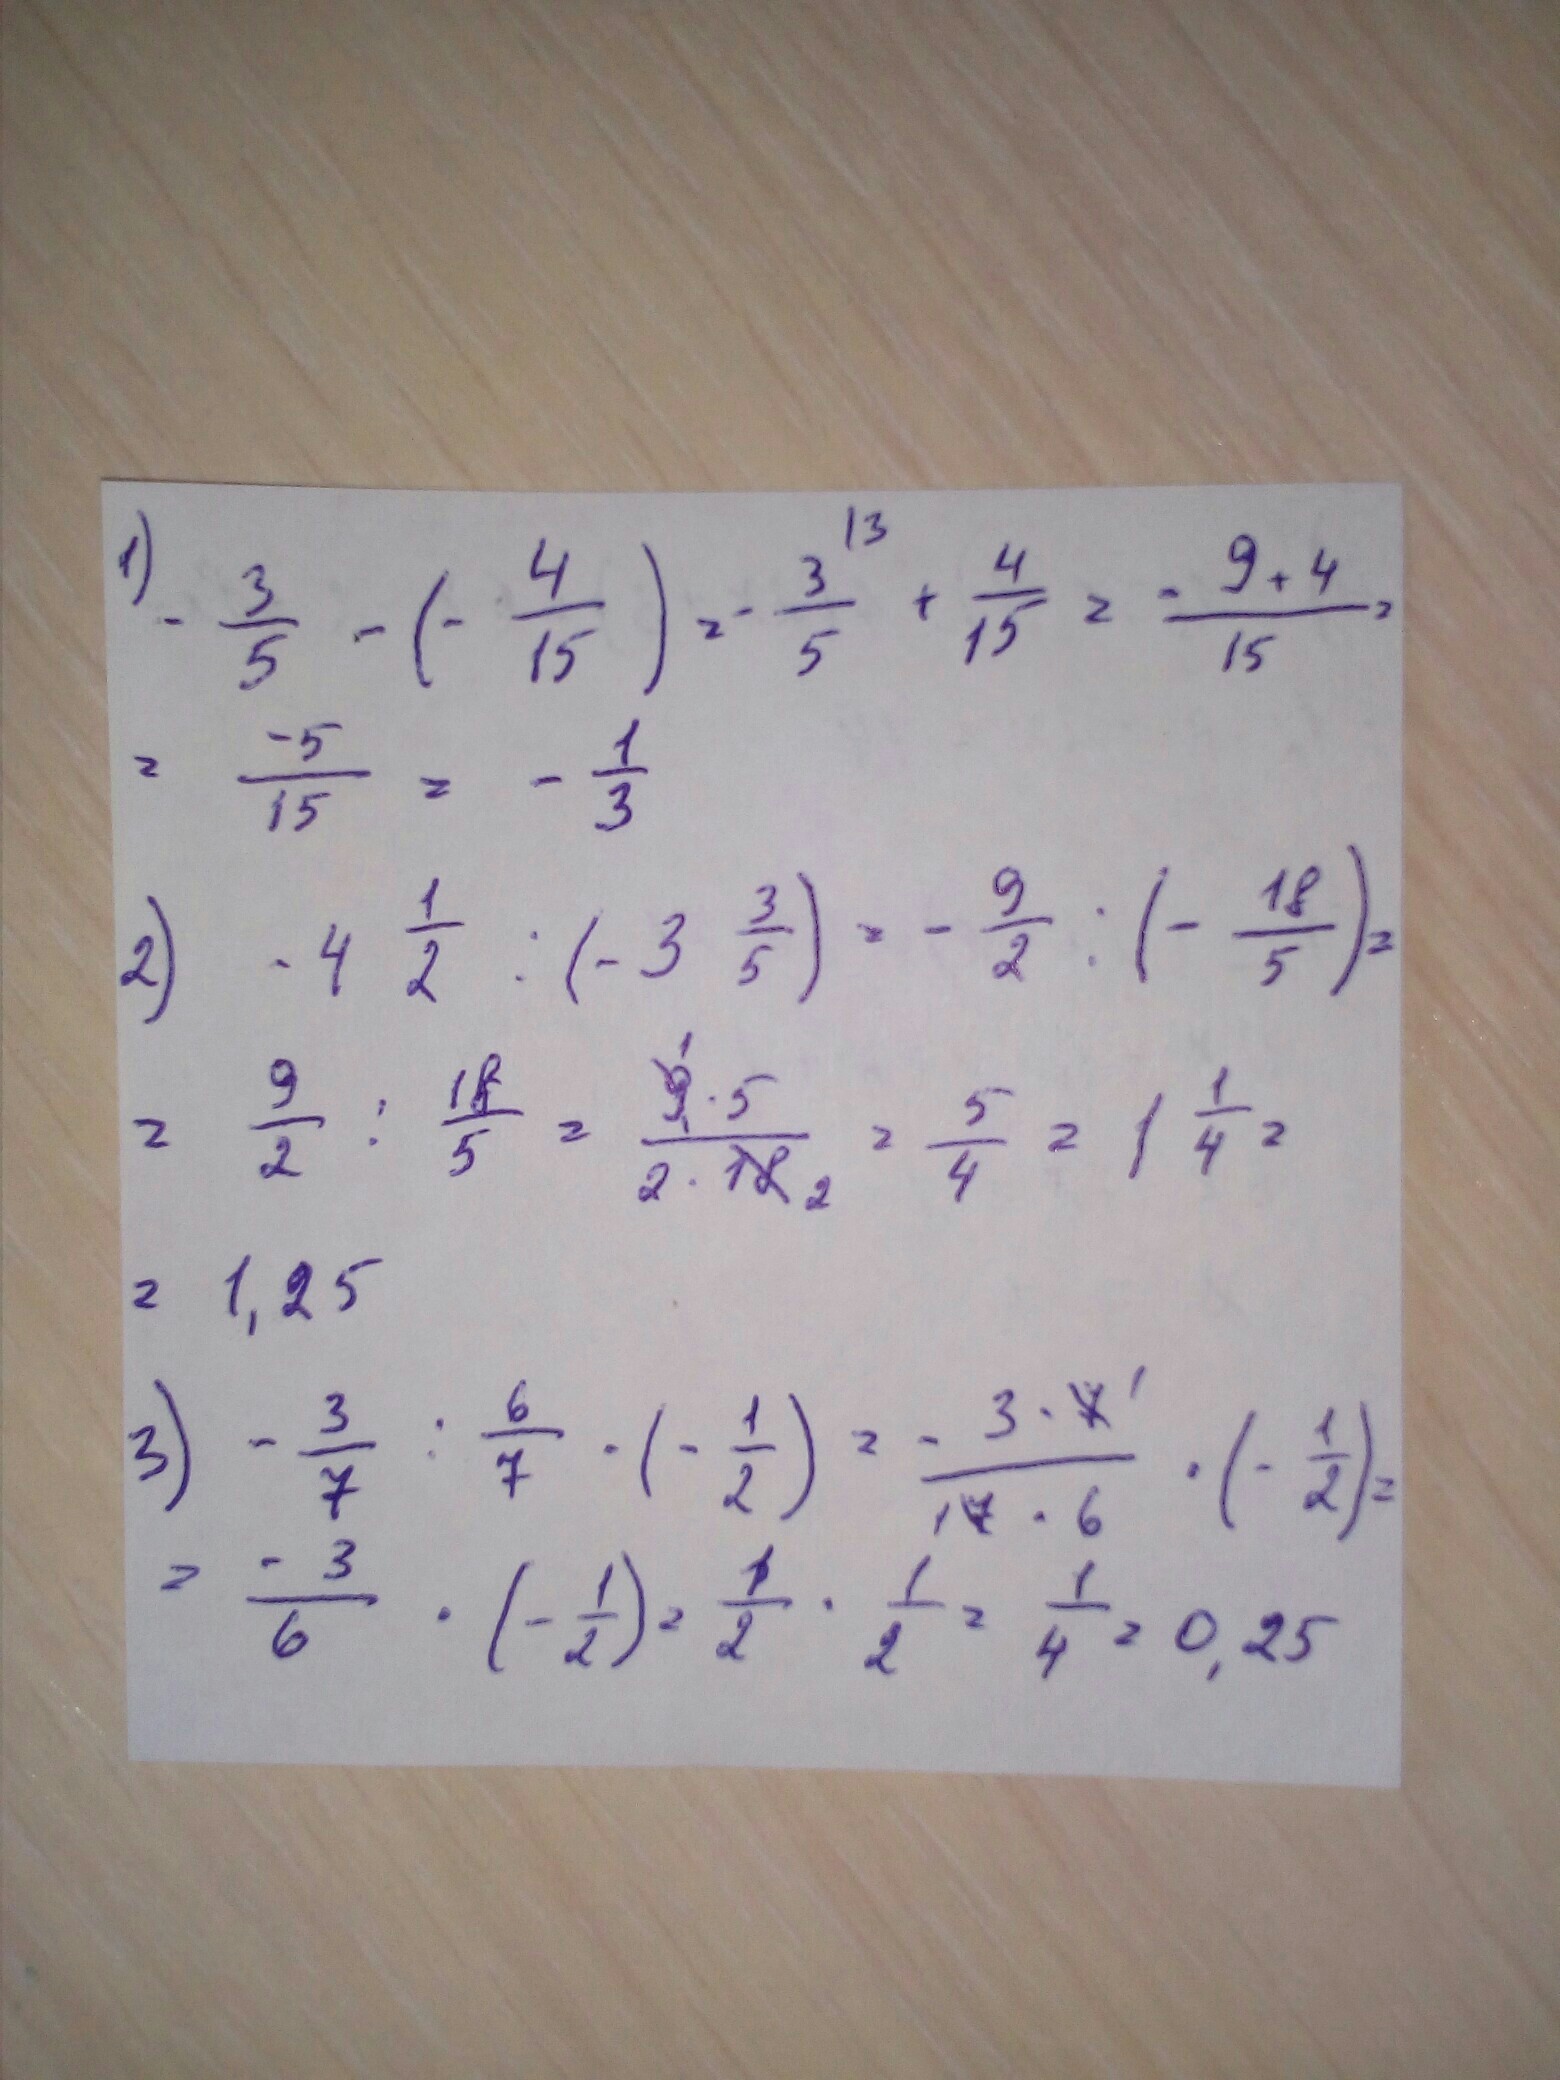 1) - 3/5 - (- 4/15) = - 3/5 ^(13) + 4/15 = - 9+4/15 =
= -5/15 = - 1/3
2) - 4 1/2 : (- 3 3/5) = - 9/2 : (- 18/5) =
= 9/2 : 18/5 = 9^1 · 5 / 2 · 18_2 = 5/4 = 1 1/4 =
= 1,25
3) - 3/7 : 6/7 · (- 1/2) = - 3 · 7^1 / _17 · 6 · (- 1/2) =
= - 3/6 · (- 1/2) = 1/2 · 1/2 = 1/4 = 0,25